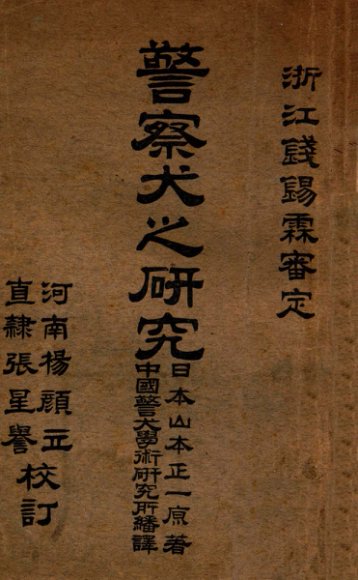 浙江錢錫霖審定
警察犬之研究
日本山本正一原著
中國警犬學術研究所繙譯
河南楊顔立
直隸張星譽
校訂